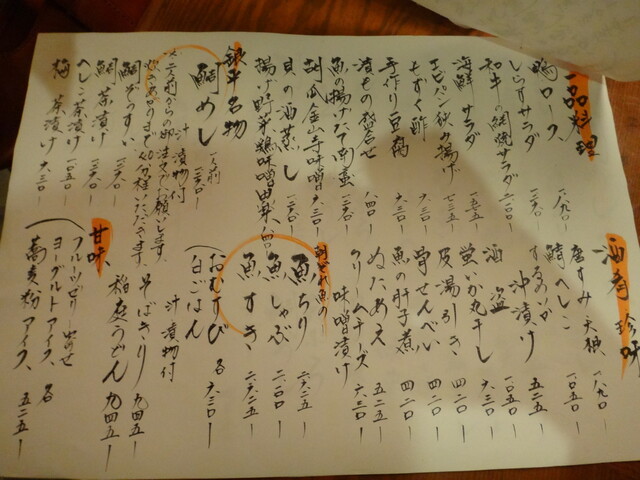 一品料理
鴨ロース 一八九〇ー
しらすサラダ 一二六〇ー
和牛の網焼サラダ 二一〇〇ー
海鮮サラダ 一五七五ー
エビパン包み揚げ 七三五ー
もずく酢 六三〇ー
手作り豆腐 六三〇ー
漬もの盛合せ 八四〇ー
魚の揚げだし南蛮 一二六〇ー
胡瓜金山寺味噌 六三〇ー
貝の酒蒸し 一二六〇ー
揚げ野菜鶏味噌田楽
銀平名物
鯛めし 一人前 一二六〇ー
汁 漬物付
※二人前からの御注文でお願いします
炊きあがりまで40分程いただきます
鯛ぞうすい 一二六〇ー
鯛茶漬け 一二六〇ー
へしこ茶漬け 一〇五〇ー
梅茶漬け 六三〇ー
酒肴 珍味
唐すみ大根 一八九〇ー
鯖へしこ 一〇五〇ー
するめいか沖漬け 五二五ー
酒盗 一〇五〇ー
蛍いか丸干し 六三〇ー
皮湯引き 四二〇ー
骨せんべい 四二〇ー
魚の肝子煮 四二〇ー
ぬたあえ 五二五ー
クリームチーズ味噌漬け 六三〇ー
魚ちり 二六二五ー
魚しゃぶ 二一〇〇ー
魚すき 二六二五ー
(おむすび
白ごはん 各六三〇ー
汁 漬物付
そばきり 九四五ー
稲庭うどん 九四五ー
甘味
ヨーグルトアイス
蕎麦粉アイス 各五二五ー